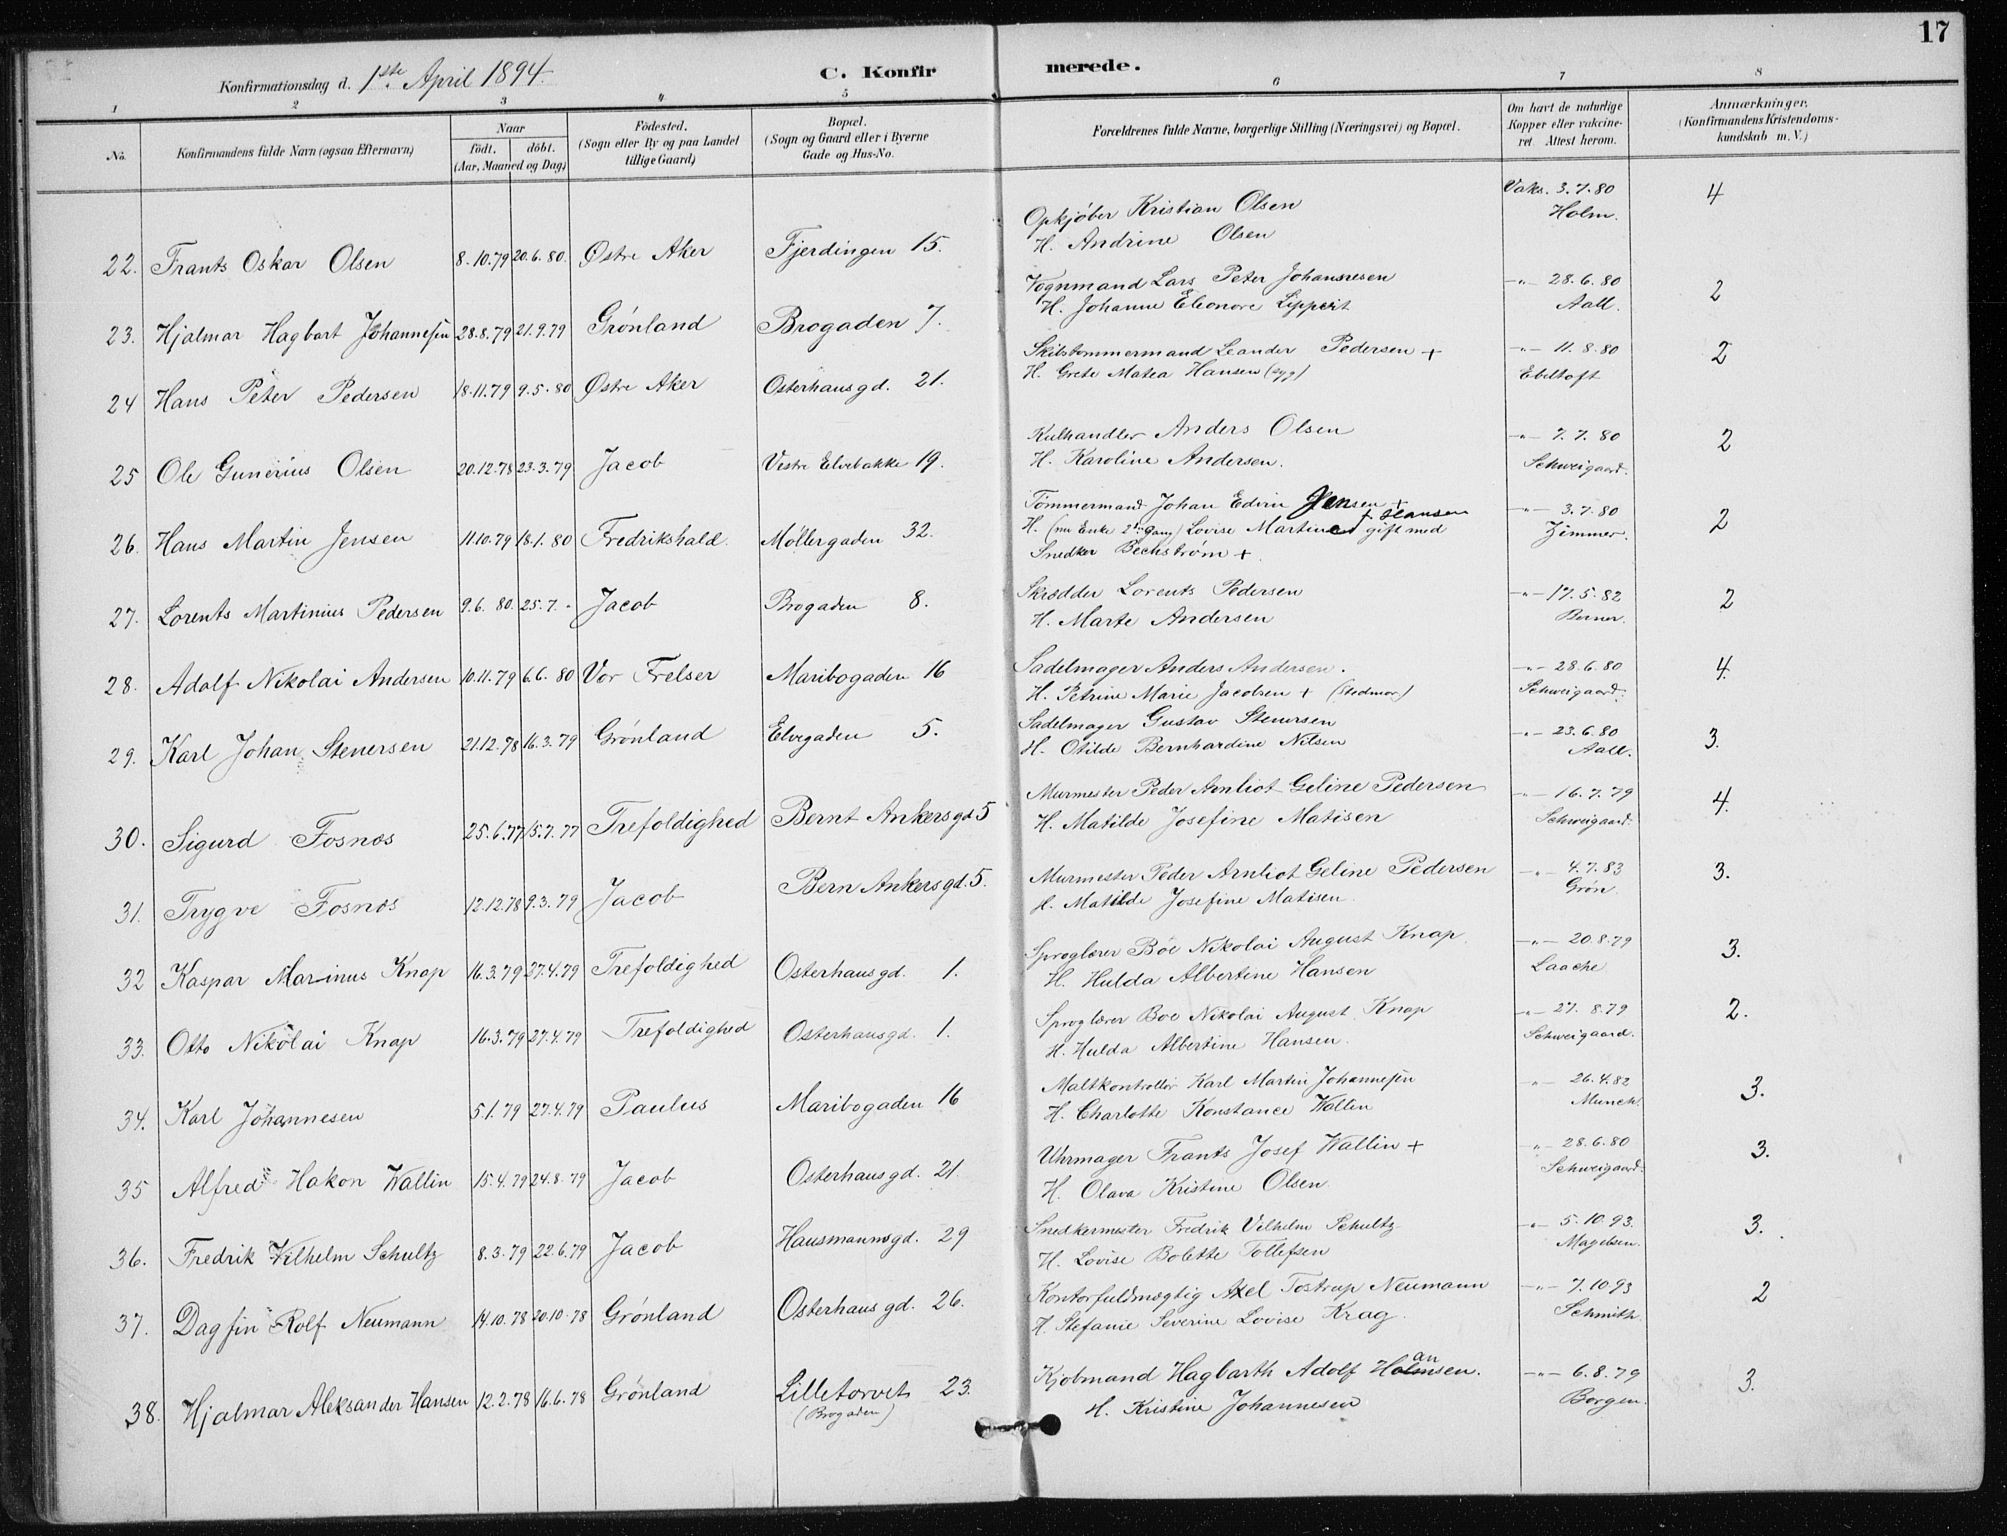 17
Konfirmationsdag d. 1ste April 1894.
C. Konfirmerede.
1 2 3 4 5 6 7 8
No.
Konfirmandens fulde Navn (ogsaa Efternavn)
Naar
födt. döbt.
(Aar, Maaned og Dag)
Födested.
(Sogn eller By og paa Landet
tillige Gaard)
Bopæl.
(Sogn og Gaard eller i Byerne
Gade og Hus-No.
Forældrenes fulde Navne, borgerlige Stilling (Næringsvei) og Bopæl.
Om havt de naturlige
Kopper eller vakcine-
ret. Attest herom.
Anmærkninger.
(Konfirmandens Kristendoms-
kundskab m. V.)
22. Frants Oskar Olsen 8.10.79 20.6.80. Østre Aker Fjerdingen 15.
Opkjøber Kristian Olsen
H. Andrine Olsen
Vaks. 3.7.80
Holm.
4
23. Hjalmar Hagbart Johannesen 28.8.79 21.9.79 Grønland Brogaden 7.
Vognmand Lars Peter Johannesen
H. Johanne Eleonore Lippert
-"- 28.6.80
Aall.
2
24 Hans Peter Pedersen 18.11.79 9.5.80 Østre Aker Osterhausgd. 21.
Skibstømmermand Leander Pedersen +
H. Grete Matea Hansen (syg)
-"- 11.8.80
Ebeltoft
2
25 Ole Gunerius Olsen 20.12.78 23.3.79 Jacob Vestre Elvebakke 19.
Kulhandler Anders Olsen
H. Karoline Andersen.
-"- 7.7.80
Schweigaard.
2
26. Hans Martin Jensen 11.10.79 18.1.80 Fredrikshald. Møllergaden 32.
Tømmermand Johan Edvin Jensen +
H. (nu Enke 2den Gang) Lovise Martine Hansen gift med
Snedker Bechstrøm +
-"- 3.7.80
Zimmer.
2
27. Lorents Martinius Pedersen 9.6.80. 25.7. - Jacob Brogaden 8.
Skrædder Lorents Pedersen
H. Marte Andersen
-"- 17.5.82
Berner.
2
28. Adolf Nikolai Andersen 10.11.79 6.6.80 Vor Frelser Maribogaden 16
Sadelmager Anders Andersen.
H. Petrine Marie Jacobsen + (Stedmor)
-"- 28.6.80
Schweigaard.
4.
29. Karl Johan Stenersen 21.12.78 16.3.79 Grønland Elvegaden 5.
Sadelmager Gustav Stenersen
H. Otilde Bernhardine Nilsen
-"- 23.6.80
Aall.
3.
30. Sigurd Fosnæs 25.6.77 15.7.77 Trefoldighed Bernt Ankersgd 5
Murmester Peder Arnliot Geline Pedersen
H. Matilde Josefine Matisen
-"- 16.7.79
Schweigaard.
4.
31. Trygve Fosnæs 12.12.78 9.3.79 Jacob Bern Ankersgd. 5.
Murmester Peder Arnliot Geline Pedersen
H. Matilde Josefine Matisen.
-"- 4.7.83
Grøn.
3.
32 Kaspar Marinus Knap 16.3.79 27.4.79 Trefoldighed Osterhausgd. 1.
Sproglærer Böe Nikolai August Knap.
H. Hulda Albertine Hansen
-"- 20.8.79
Laache
3.
33. Otto Nikolai Knap 16.3.79 27.4.79 Trefoldighed Osterhausgd. 1.
Sproglærer Böe Nikolai August Knap
H. Hulda Albertine Hansen.
-"- 27.8.79
Schweigaard.
2.
34. Karl Johannesen 5.1.79 27.4.79 Paulus Maribogaden 16
Maltkontrollör Karl Martin Johannesen
H. Charlotte Konstance Wallin
-"- 26.4.82
Munch.
3.
35 Alfred Hakon Wallin 15.4.79 24.8.79 Jacob Osterhausgd. 21.
Uhrmager Frants Josef Wallin +
H. Olava Kristine Olsen
-"- 28.6.80
Schweigaard.
3.
36. Fredrik Vilhelm Schultz 8.3.79 22.6.79 Jacob Hausmannsgd. 29
Snedkermester Fredrik Vilhelm Schultz
H. Lovise Bolette Tollefsen
-"- 5.10.93.
Magelsen.
3.
37. Dagfin Rolf Neumann 14.10.78 20.10.78 Grønland Osterhausgd. 26.
Kontorfuldmægtig Axel Tostrup Neumann
H. Stefanie Severine Lovise Krag.
-"- 7.10.93
Schmith.
2
38. Hjalmar Aleksander Hansen 12.2.78 16.6.78 Grønland Lilletorvet 23.
(Brogaden)
Kjøbmand Hagbarth Adolf Hansen.
H. Kristine Johannesen
-"- 6.8.79
Borgen.
3.